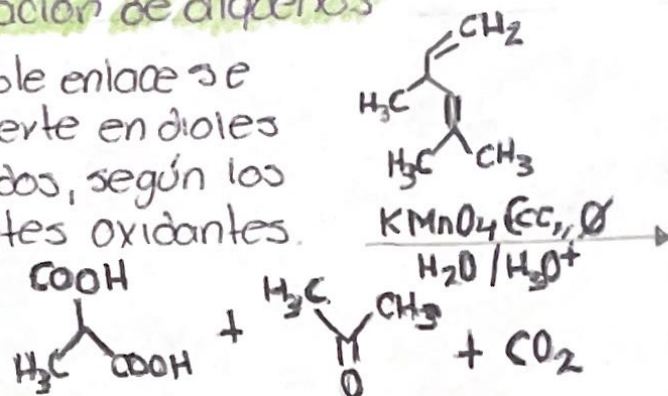 ación de alquenos
ble enlace se
erte en dioles
dos, según los
tes oxidantes.
CH2
H3C
H3C CH3
KMnO4 (cc), Ø
H2O / H3O+
COOH
H3C COOH
+
H3C CH3
O
+ CO2